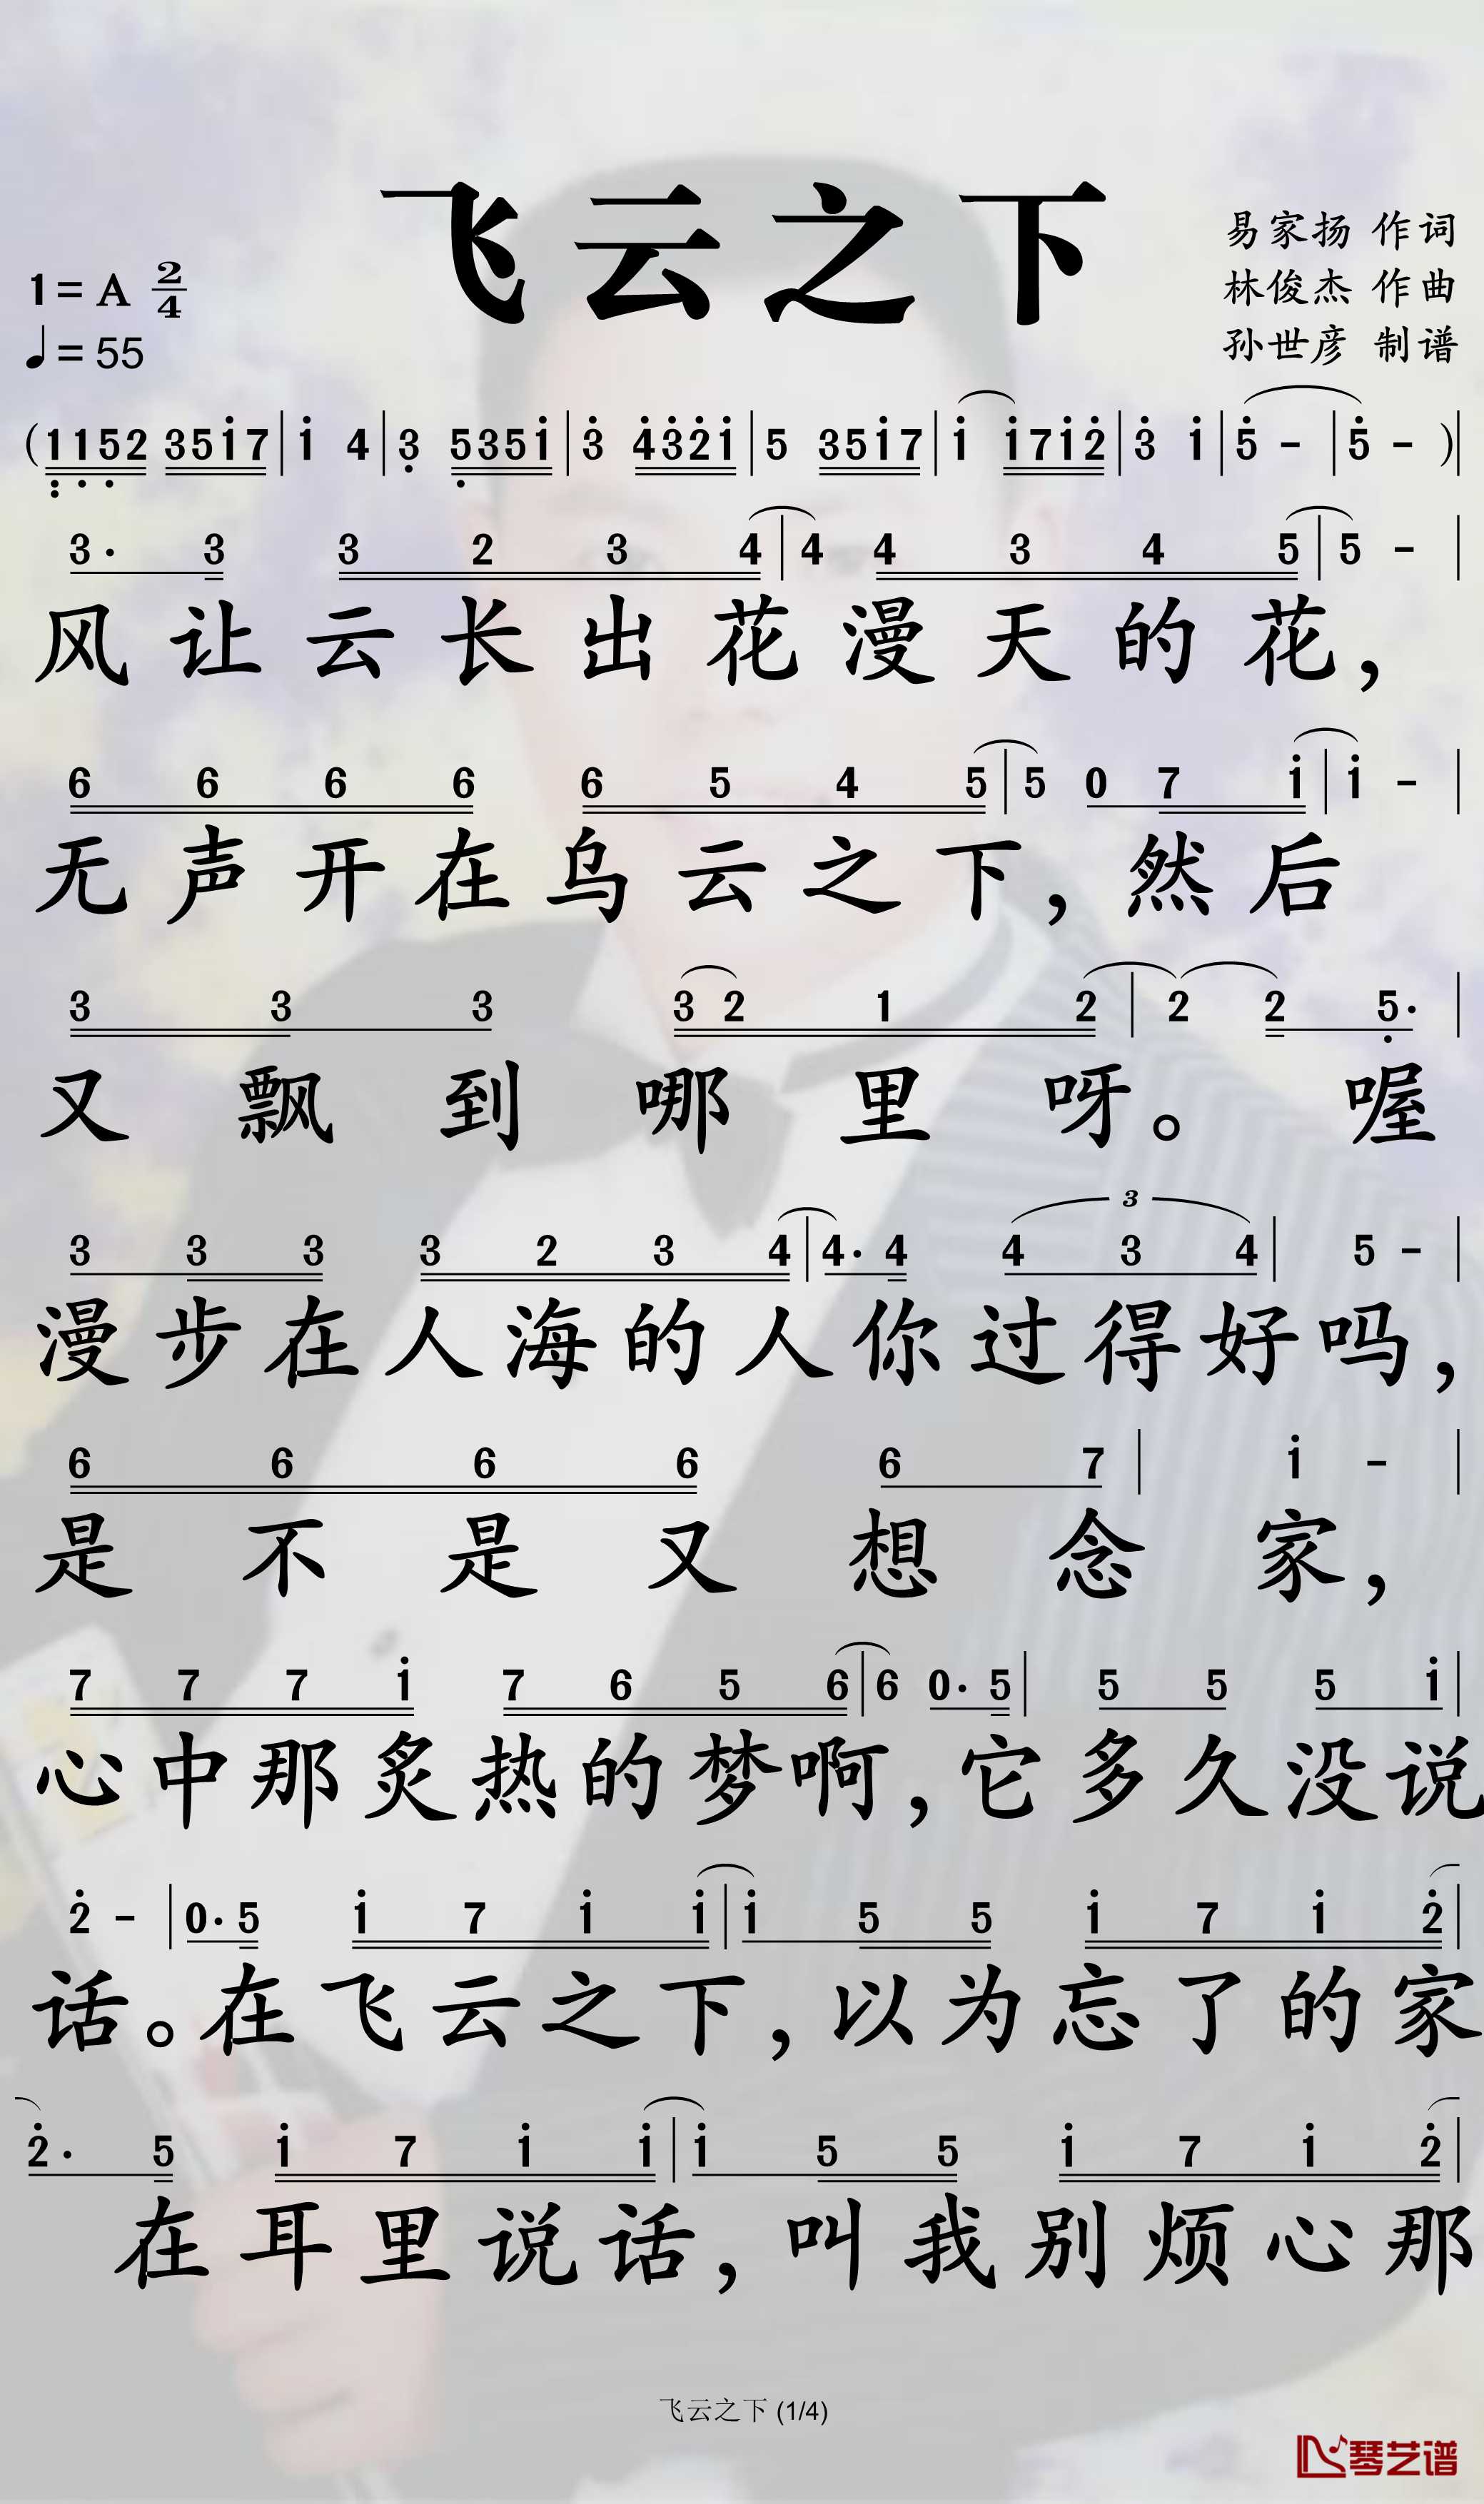 飞云之下
易家扬 作词
1=A 2/4
林俊杰 作曲
♩=55
孙世彦 制谱
(1152 35i7|i 4|3 535i|3 432i|5 35i7|i i7i2|3 i|5 -|5 -)|
3· 3 3 2 3 4|4 4 3 4 5|5 -|
风让云长出花漫天的花,
6 6 6 6 6 5 4 5|5 0 7 i|i -|
无声开在乌云之下,然后
3 3 3 3 2 1 2|2 2 5·|
又飘到哪里呀。喔
3 3 3 3 2 3 4|4· 4 4 3 4|5 -|
3
漫步在人海的人你过得好吗,
6 6 6 6 6 7|i -|
是不是又想念家,
7 7 7 i 7 6 5 6|6 0· 5|5 5 5 i|
心中那炙热的梦啊,它多久没说
2 -|0· 5 i 7 i i|i 5 5 i 7 i 2|
话。在飞云之下,以为忘了的家
2· 5 i 7 i i|i 5 5 i 7 i 2|
在耳里说话,叫我别烦心那
飞云之下 (1/4)
琴艺谱